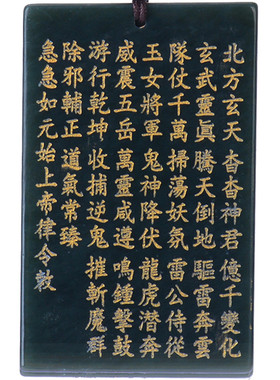 北方玄天 杳杳神君 億千變化
玄武靈眞 騰天倒地 驅雷奔雲
隊仗千萬 掃蕩妖氛 雷公侍從
玉女將軍 鬼神降伏 龍虎潛奔
威震五岳 萬靈咸遵 鳴鍾擊鼓
游行乾坤 收捕逆鬼 摧斬魔群
除邪輔正 道氣常臻
急急如元始上帝律令敕